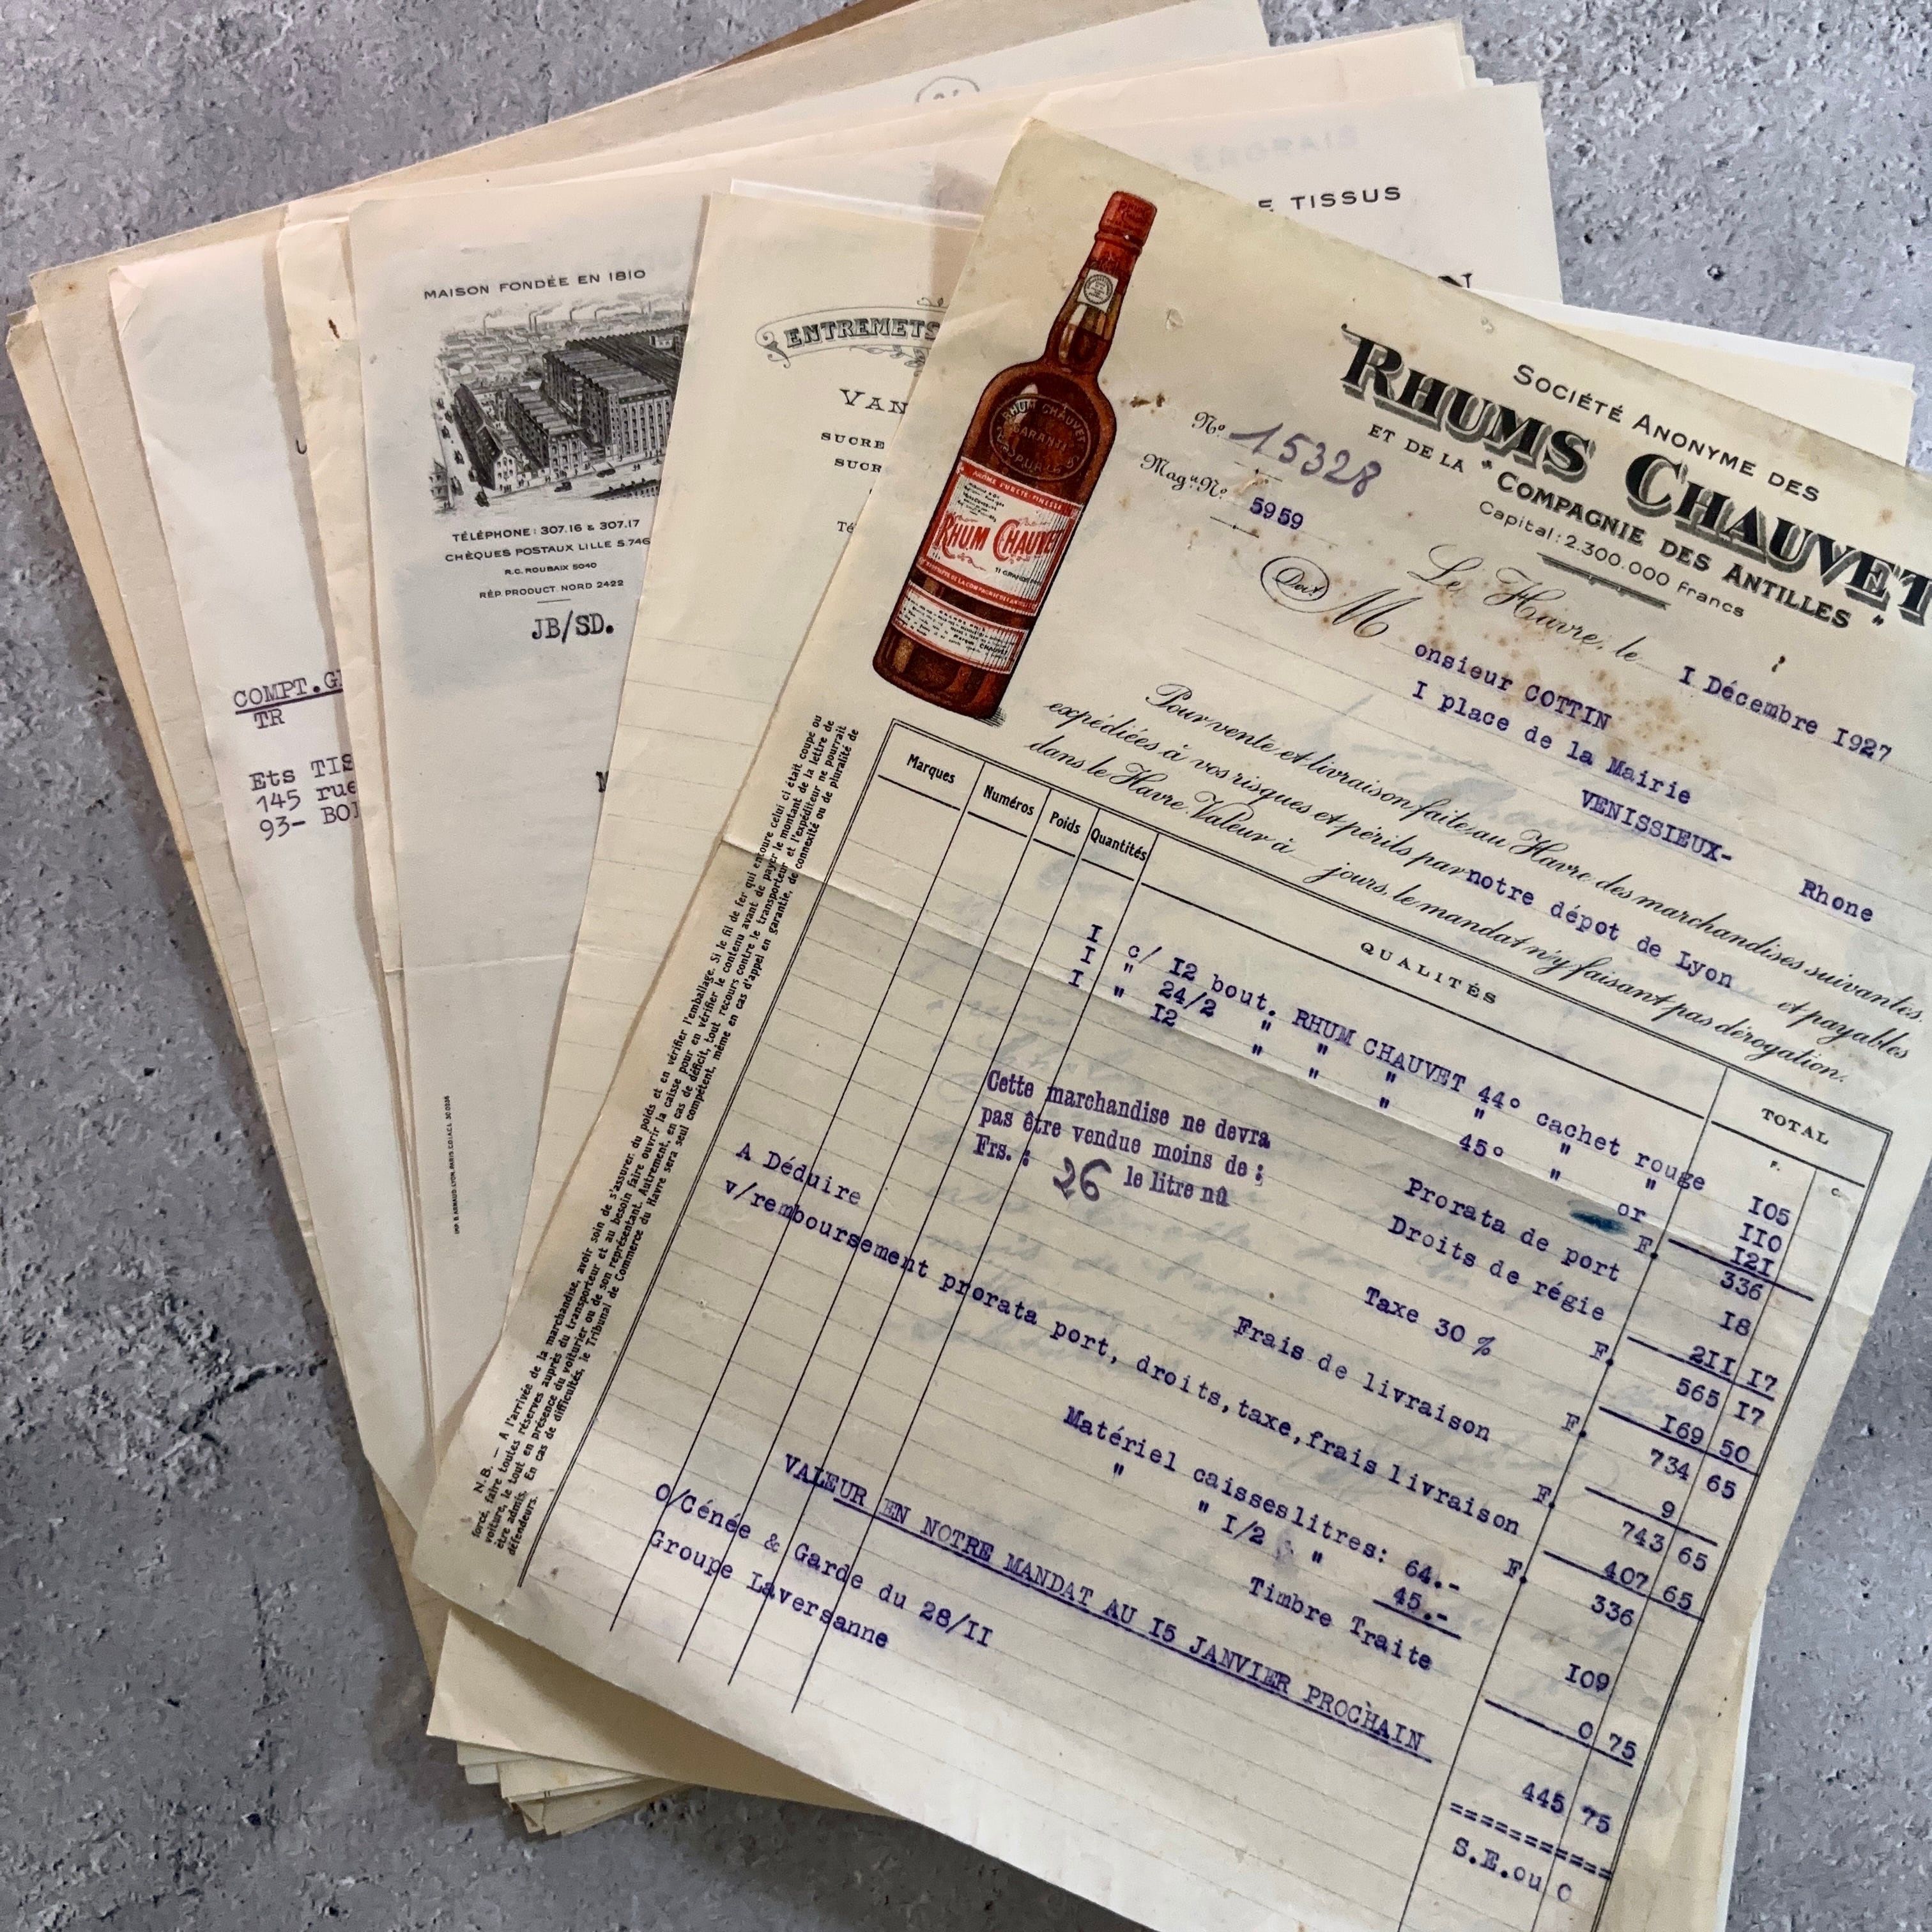 E TISSUS
MAISON FONDÉE EN 1810
TÉLÉPHONE: 307.16 & 307.17
CHÈQUES POSTAUX LILLE 5.746
R.C. ROUBAIX 5040
RÉP. PRODUCT. NORD 2422
JB/SD.
COMPT.G
TR
Ets TIS
145 rue
93- BO
ENTREMETS
VAN
SUCRE
SUCR
Té
SOCIÉTÉ ANONYME DES
RHUMS CHAUVET
ET DE LA "COMPAGNIE DES ANTILLES"
Capital: 2.300.000 Francs
RHUM CHAUVET
GARANTI
AROME PURETÉ FINESSE
RHUM CHAUVET
No. 15328
Magn. No. 5959
Le Havre, le I Décembre 1927
Doit
Monsieur COTTIN
I place de la Mairie
VENISSIEUX-
Rhone
Pour vente et livraison faite au Havre des marchandises suivantes.
expédiées à vos risques et périls par notre dépot de Lyon et payables
dans le Havre. Valeur à jours, le mandat n'y faisant pas dérogation.
Marques Numéros Poids Quantités QUALITÉS TOTAL
F. C.
I c/ I2 bout. RHUM CHAUVET 44° cachet rouge I05
I " 24/2 " " " " " " II0
I " I2 " " " 45° " or I2I
F. 336
Prorata de port I8
Droits de régie 2II I7
F. 565 I7
Taxe 30 % I69 50
F. 734 65
Frais de livraison 9
F. 743 65
Cette marchandise ne devra
pas être vendue moins de :
Frs. : 26 le litre nû
A Déduire
v/remboursement prorata port, droits,taxe,frais livraison 407 65
F. 336
Matériel caisses litres: 64.-
" " I/2 " 45.- I09
Timbre Traite 0 75
445 75
==========
S.E.ou O
VALEUR EN NOTRE MANDAT AU I5 JANVIER PROCHAIN
O/Cénée & Garde du 28/II
Groupe Laversanne
N.B. — A l'arrivée de la marchandise, avoir soin de s'assurer du poids et en vérifier l'emballage. Si le fil de fer qui entoure celui ci était coupé ou
forcé, faire toutes réserves auprès du transporteur et au besoin faire ouvrir la caisse pour en vérifier le contenu avant de payer le montant de la lettre de
voiture, le tout en présence du voiturier ou de son représentant. Autrement, en cas de déficit, tout recours contre le transporteur et l'expéditeur ne pourrait
être admis. En cas de difficultés, le Tribunal de Commerce du Havre sera seul compétent, même en cas d'appel en garantie, de connexité ou de pluralité de
défendeurs.